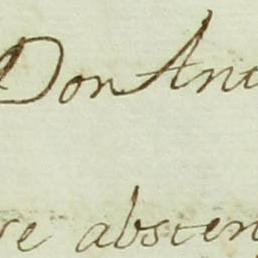 Don Ant
re absten